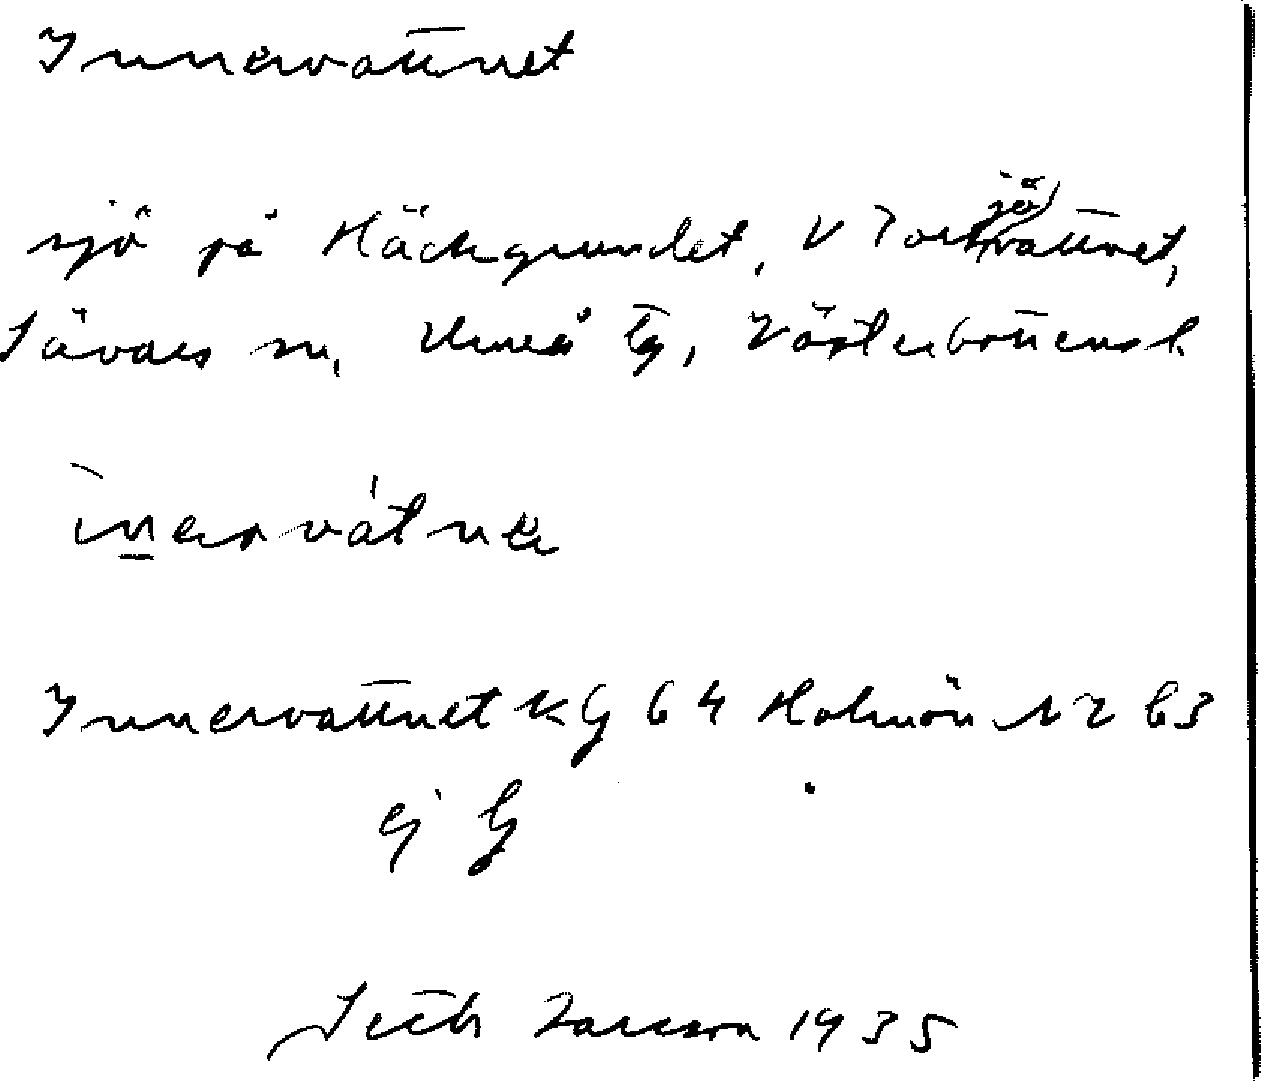 Innervattnet
sjö på Häckgrundet, V Torrsjövattnet,
Sävars sn, Umeå tg, Västerbottens l.
Innervattnet KG 64 Holmön NZ 63
ej G
Seth Larsson 1935